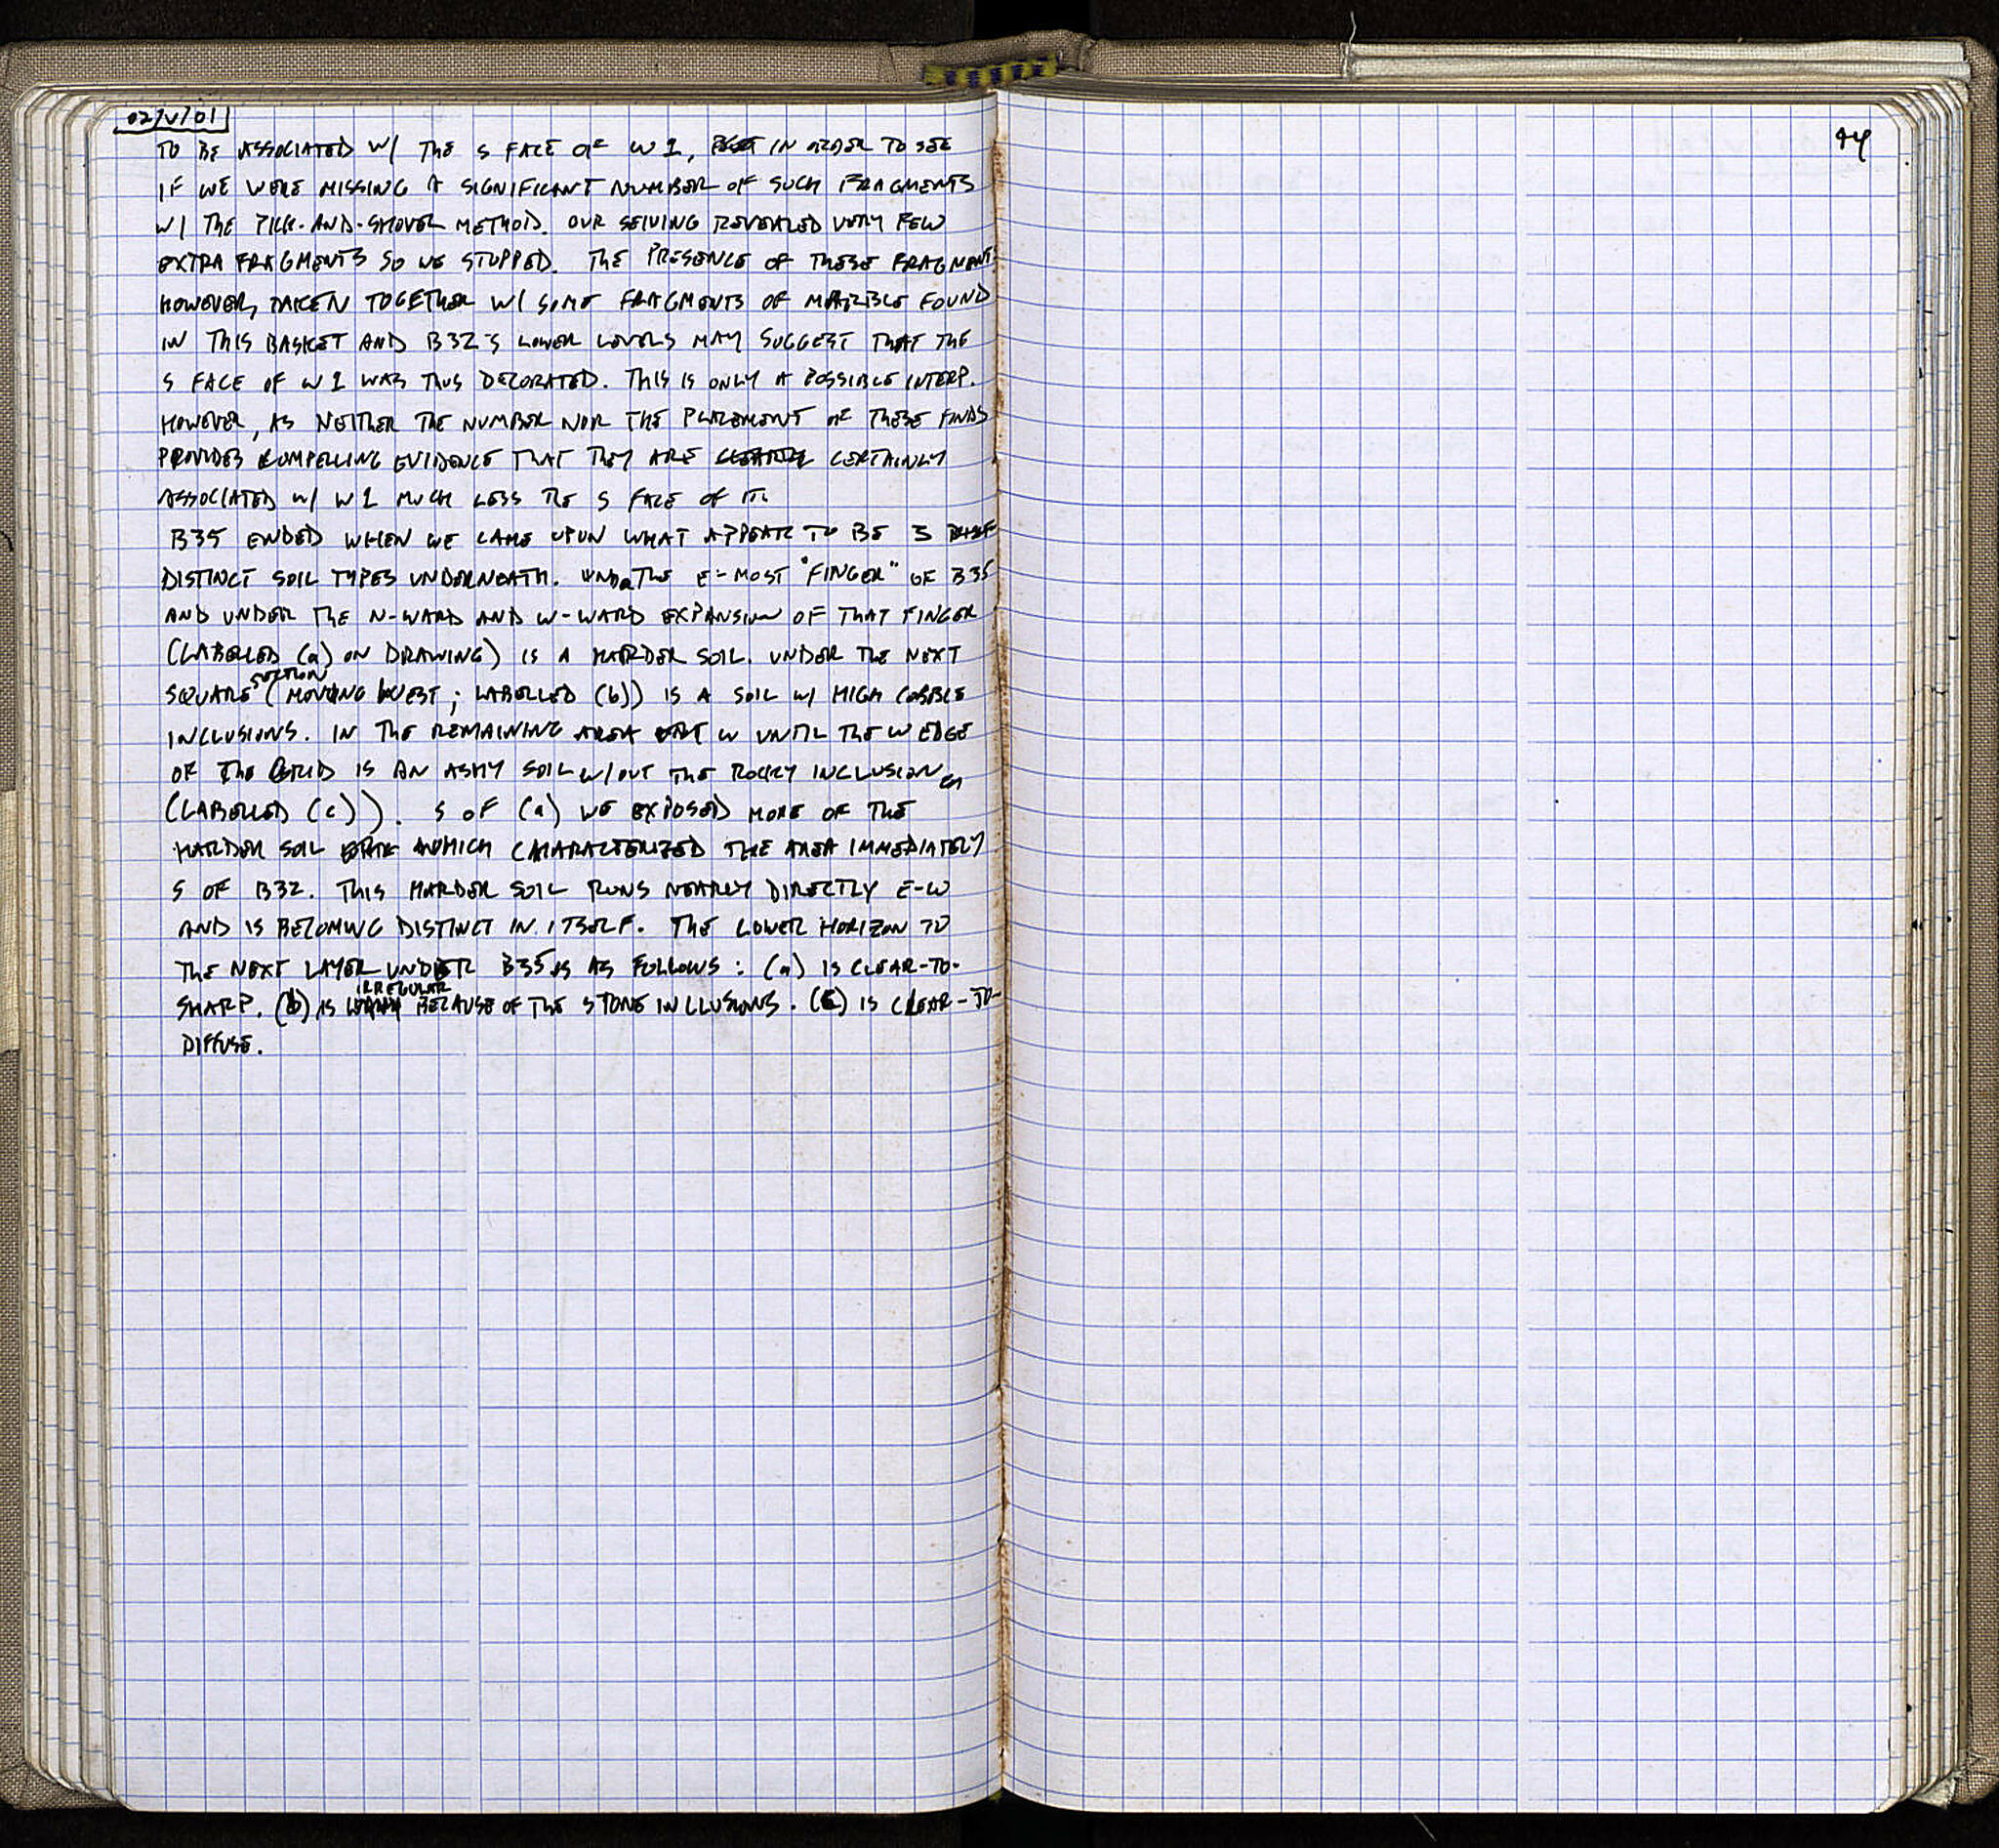 02/V/01
TO BE ASSOCIATED W/ THE S FACE OF W1, IN ORDER TO SEE
IF WE WERE MISSING A SIGNIFICANT NUMBER OF SUCH FRAGMENTS
W/ THE PICK-AND-SHOVEL METHOD. OUR SEIVING REVEALED VERY FEW
EXTRA FRAGMENTS SO WE STOPPED. THE PRESENCE OF THESE FRAGMENTS
HOWEVER, TAKEN TOGETHER W/ SOME FRAGMENTS OF MARBLE FOUND
IN THIS BASKET AND B32'S LOWER LEVELS MAY SUGGEST THAT THE
S FACE OF W1 WAS THUS DECORATED. THIS IS ONLY A POSSIBLE INTERP.
HOWEVER, AS NEITHER THE NUMBER NOR THE PLACEMENT OF THESE FINDS
PROVIDES COMPELLING EVIDENCE THAT THEY ARE CERTAINLY
ASSOCIATED W/ W1 MUCH LESS THE S FACE OF IT.
B35 ENDED WHEN WE CAME UPON WHAT APPEAR TO BE 3
DISTINCT SOIL TYPES UNDERNEATH. UNDER THE E-MOST "FINGER" OF B35
AND UNDER THE N-WARD AND W-WARD EXPANSION OF THAT FINGER
(LABELLED (a) ON DRAWING) IS A HARDER SOIL. UNDER THE NEXT
SQUARE SECTION (MOVING WEST; LABELLED (b)) IS A SOIL W/ HIGH COBBLE
INCLUSIONS. IN THE REMAINING AREA W UNTIL THE W EDGE
OF THE GRID IS AN ASHY SOIL W/OUT THE ROCKY INCLUSIONS
(LABELLED (c)). S OF (a) WE EXPOSED MORE OF THE
HARDER SOIL WHICH CHARACTERIZED THE AREA IMMEDIATELY
S OF B32. THIS HARDER SOIL RUNS NEARLY DIRECTLY E-W
AND IS BECOMING DISTINCT IN ITSELF. THE LOWER HORIZON TO
THE NEXT LAYER UNDER B35 IS AS FOLLOWS: (a) IS CLEAR-TO-
SHARP. (b) IS IRREGULAR BECAUSE OF THE STONE INCLUSIONS. (c) IS CLEAR-TO-
DIFFUSE.
44